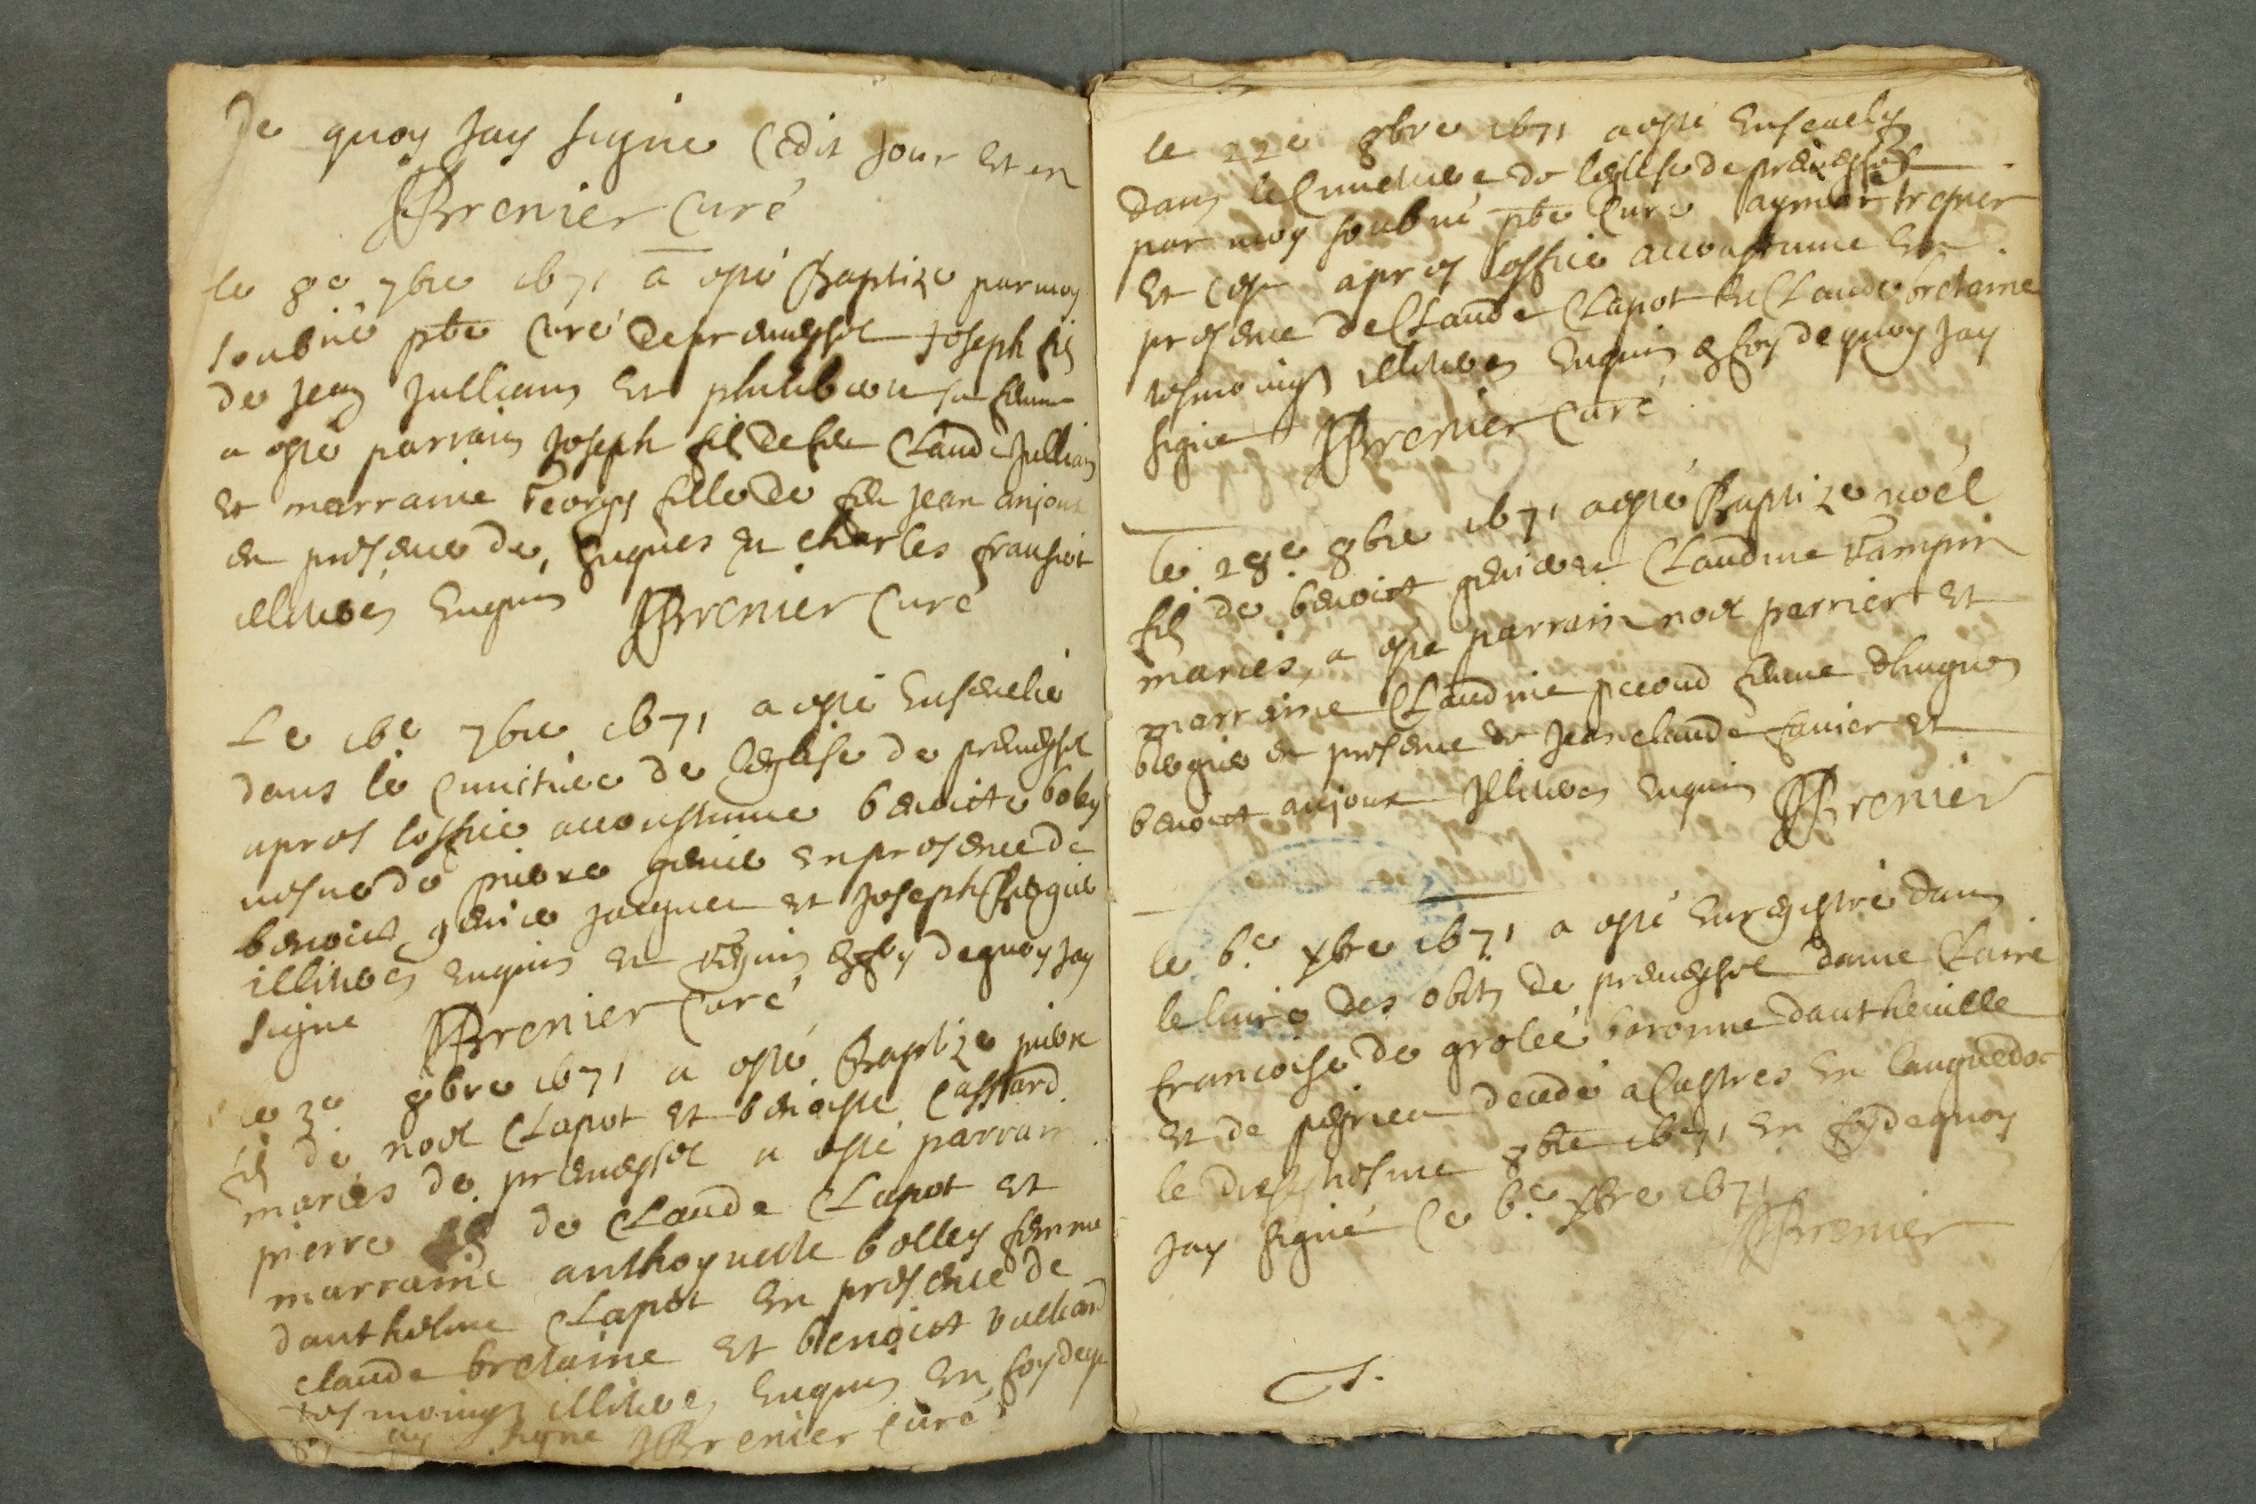 De quoy Jay signe Cedit Jour et en
JBrenier Curé
le 8e 7bre 1671 a esté Baptize par moy
soubné pbre Curé de premeysel Joseph fils
de Jean Jullians et philiberte sa femme
a esté parrain Joseph fils de feu Claude Jullian
et marraine Georges fille de feu Jean anjoux
en presence de hugues et charles
illiterés Enquis JBrenier Curé
Le 16e 7bre 1671 a esté Ensevelie
dans le Cimetiere de leglise de premeysel
apres loffice accoustume benoicte boley
vesve de pierre genin en presence de
benoict genin Jacques et Joseph
illiterés enquis et requis en foy de quoy Jay
signe JBrenier Curé
Le 3e 8bre 1671 a esté Baptize pierre
fils de noel Clapot et benoiste Cassard
mariés de premeysel a esté parrain
pierre fils de Claude Clapot et
marraine anthoynette bolley femme
danthelme Clapot en presence de
claude bretaine et benoict
tesmoings illiteres Enquis En foy de quoy
Jay signe JBrenier Curé
le 22e 8bre 1671 a esté Ensevely
dans le Cimetiere de leglise de premeyssel
par moy soubné pbre Curé aymar
et ce apres loffice accoustume en
presence de Claude Clapot et Claude bretaine
tesmoings illiteres Enquis en foy de quoy Jay
signe JBrenier Curé
le 28e 8bre 1671 a esté Baptize noel
fils de benoict genin et Claudine
mariés, a esté parrain noel perrier et
marraine Claudine femme dhugues
en presence de Jean claude favier et
benoict anjoux Illiteres Enquis JBrenier
le 6e Xbre 1671 a esté Enregistré dans
le livre des obits de premeyssel dame Claire
francoise de grolée baronne dantheville
et de peyrieu decedé a Castres en languedoc
le 8bre 1671 en foy de quoy
Jay signé Ce 6e Xbre 1671
JBrenier